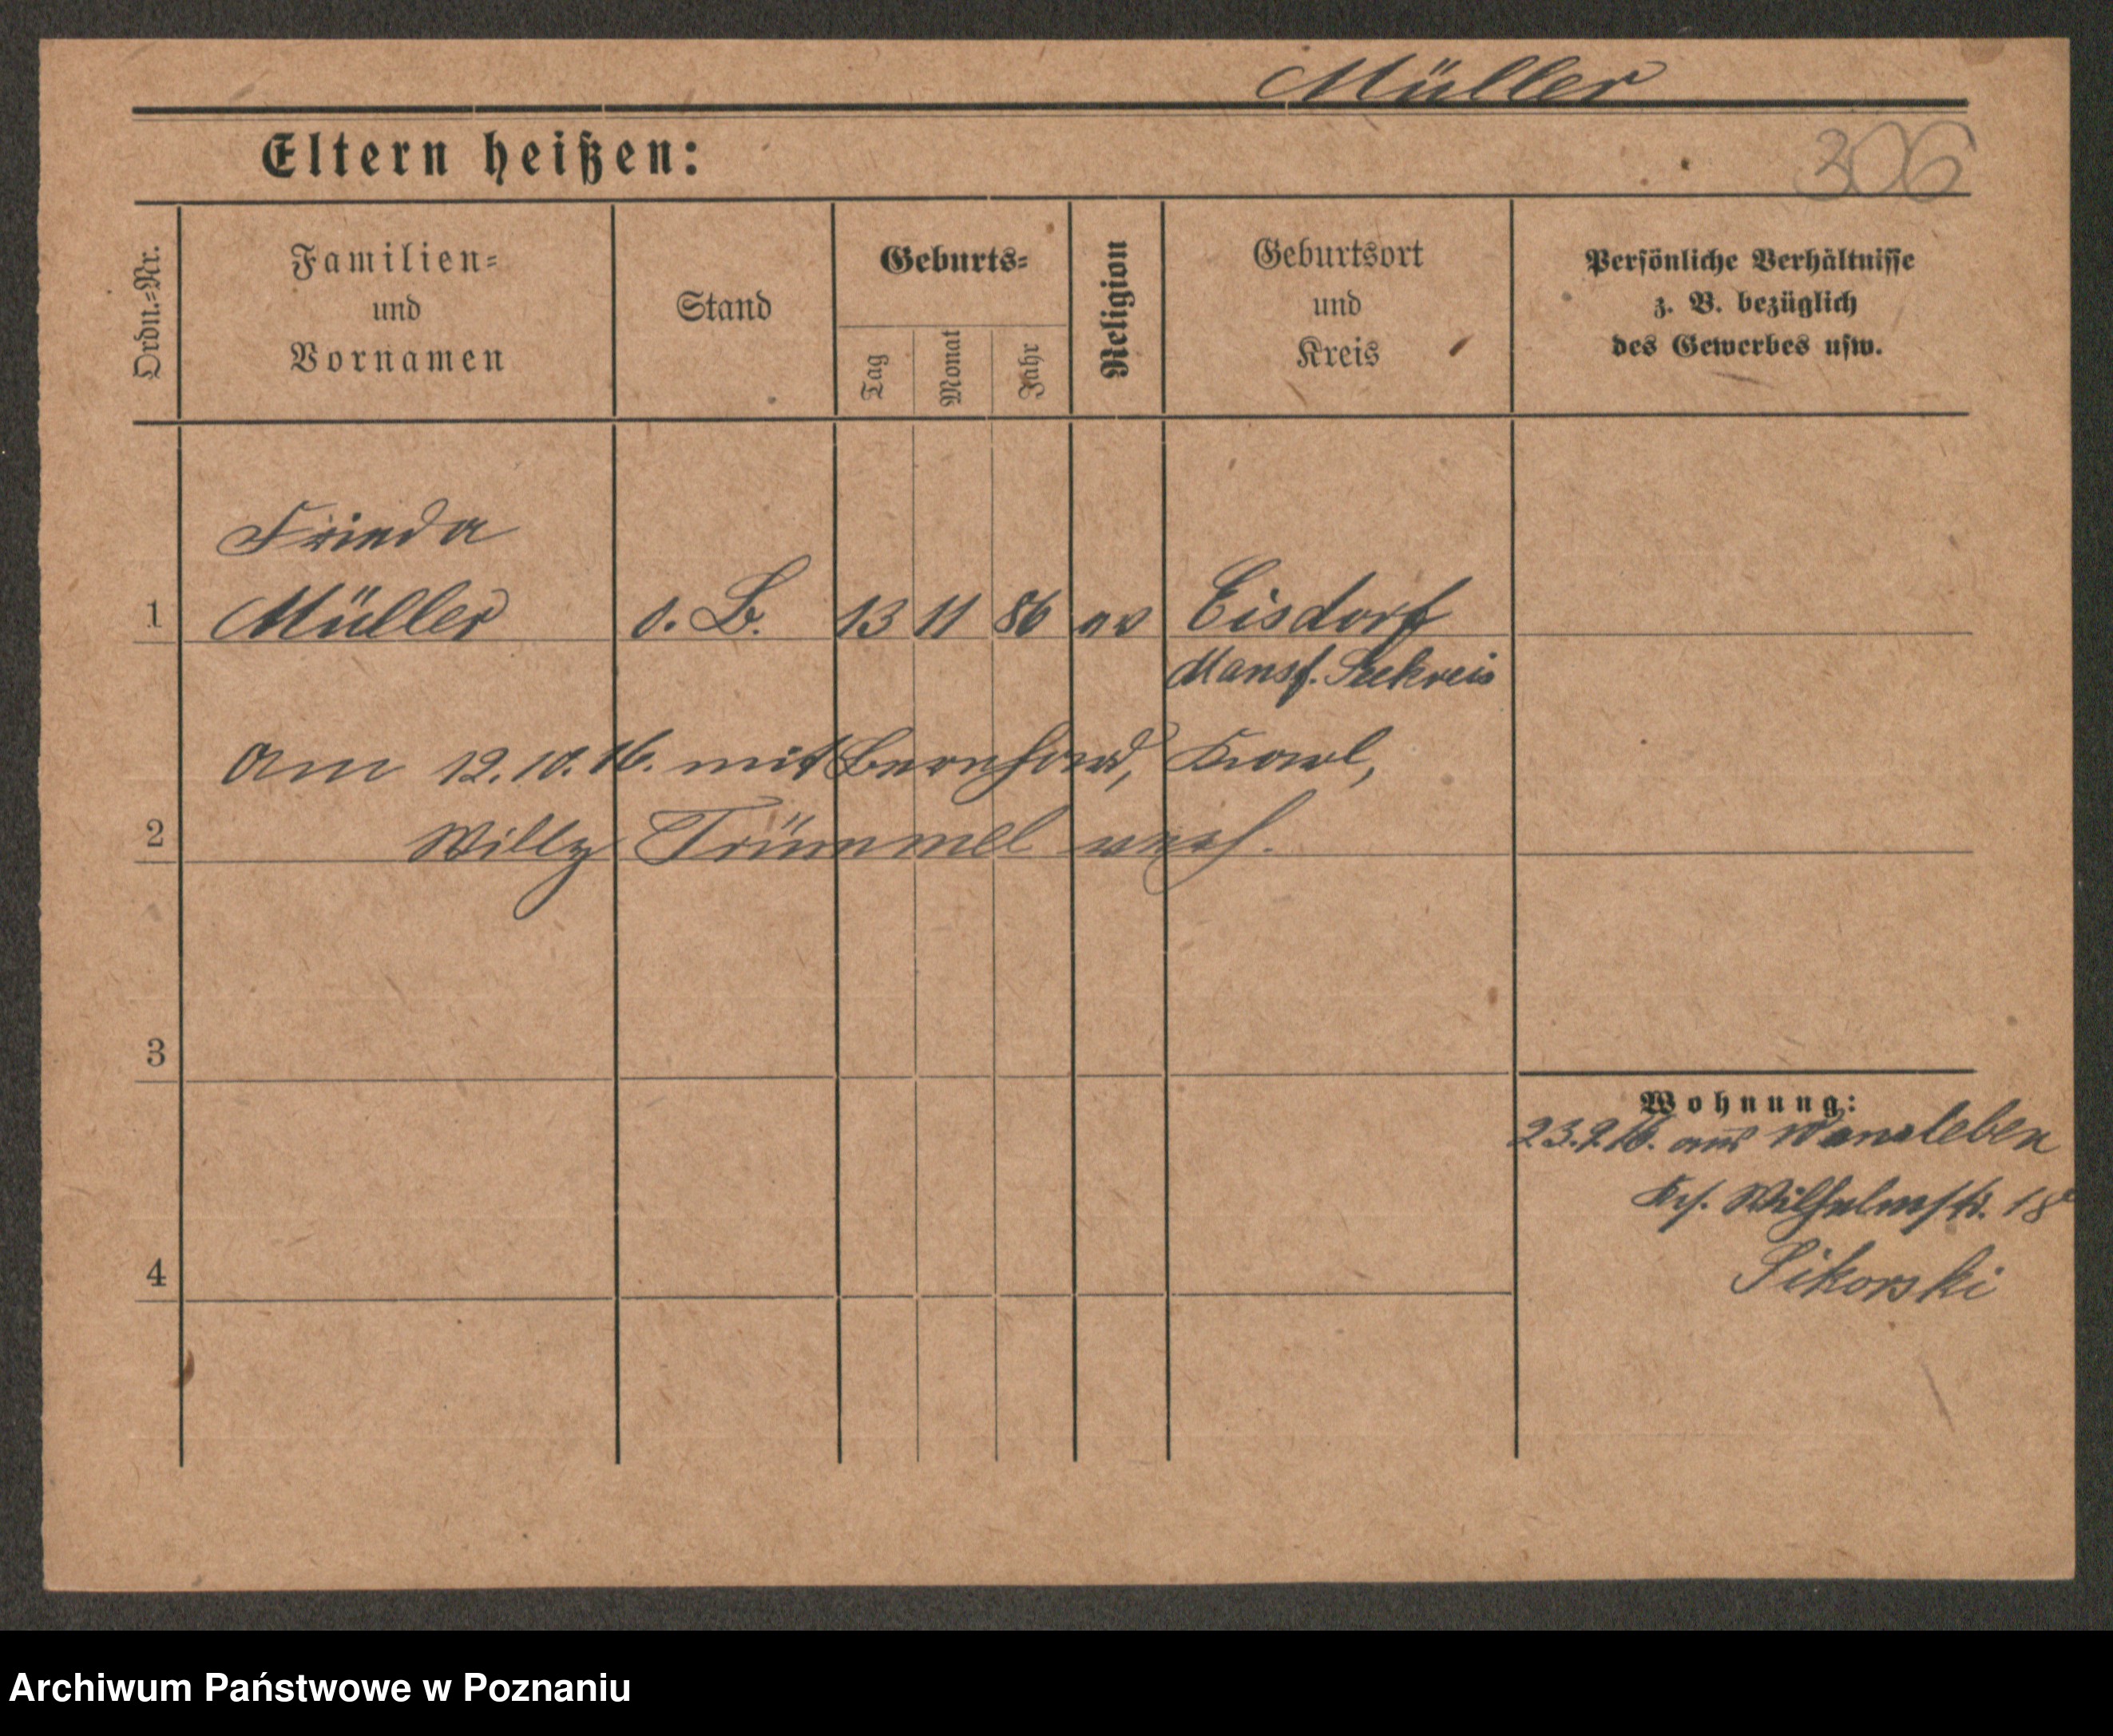 Müller
Eltern heißen:
306
Ordn.=Nr.
Familien=
und
Vornamen
Stand
Geburts=
Tag
Monat
Jahr
Religion
Geburtsort
und
Kreis
Persönliche Verhältnisse
z. B. bezüglich
des Gewerbes usw.
Frieda
1 Müller o. B. 13 11 86 ev Eisdorf
Mansf. Seekreis
am 12.10.16. mit Bernhard, Karl,
2 Willy Trümmel verh.
3
Wohnung:
23.9.16. aus Wansleben
Wilhelmstr. 18
4 Sikorski
Archiwum Państwowe w Poznaniu